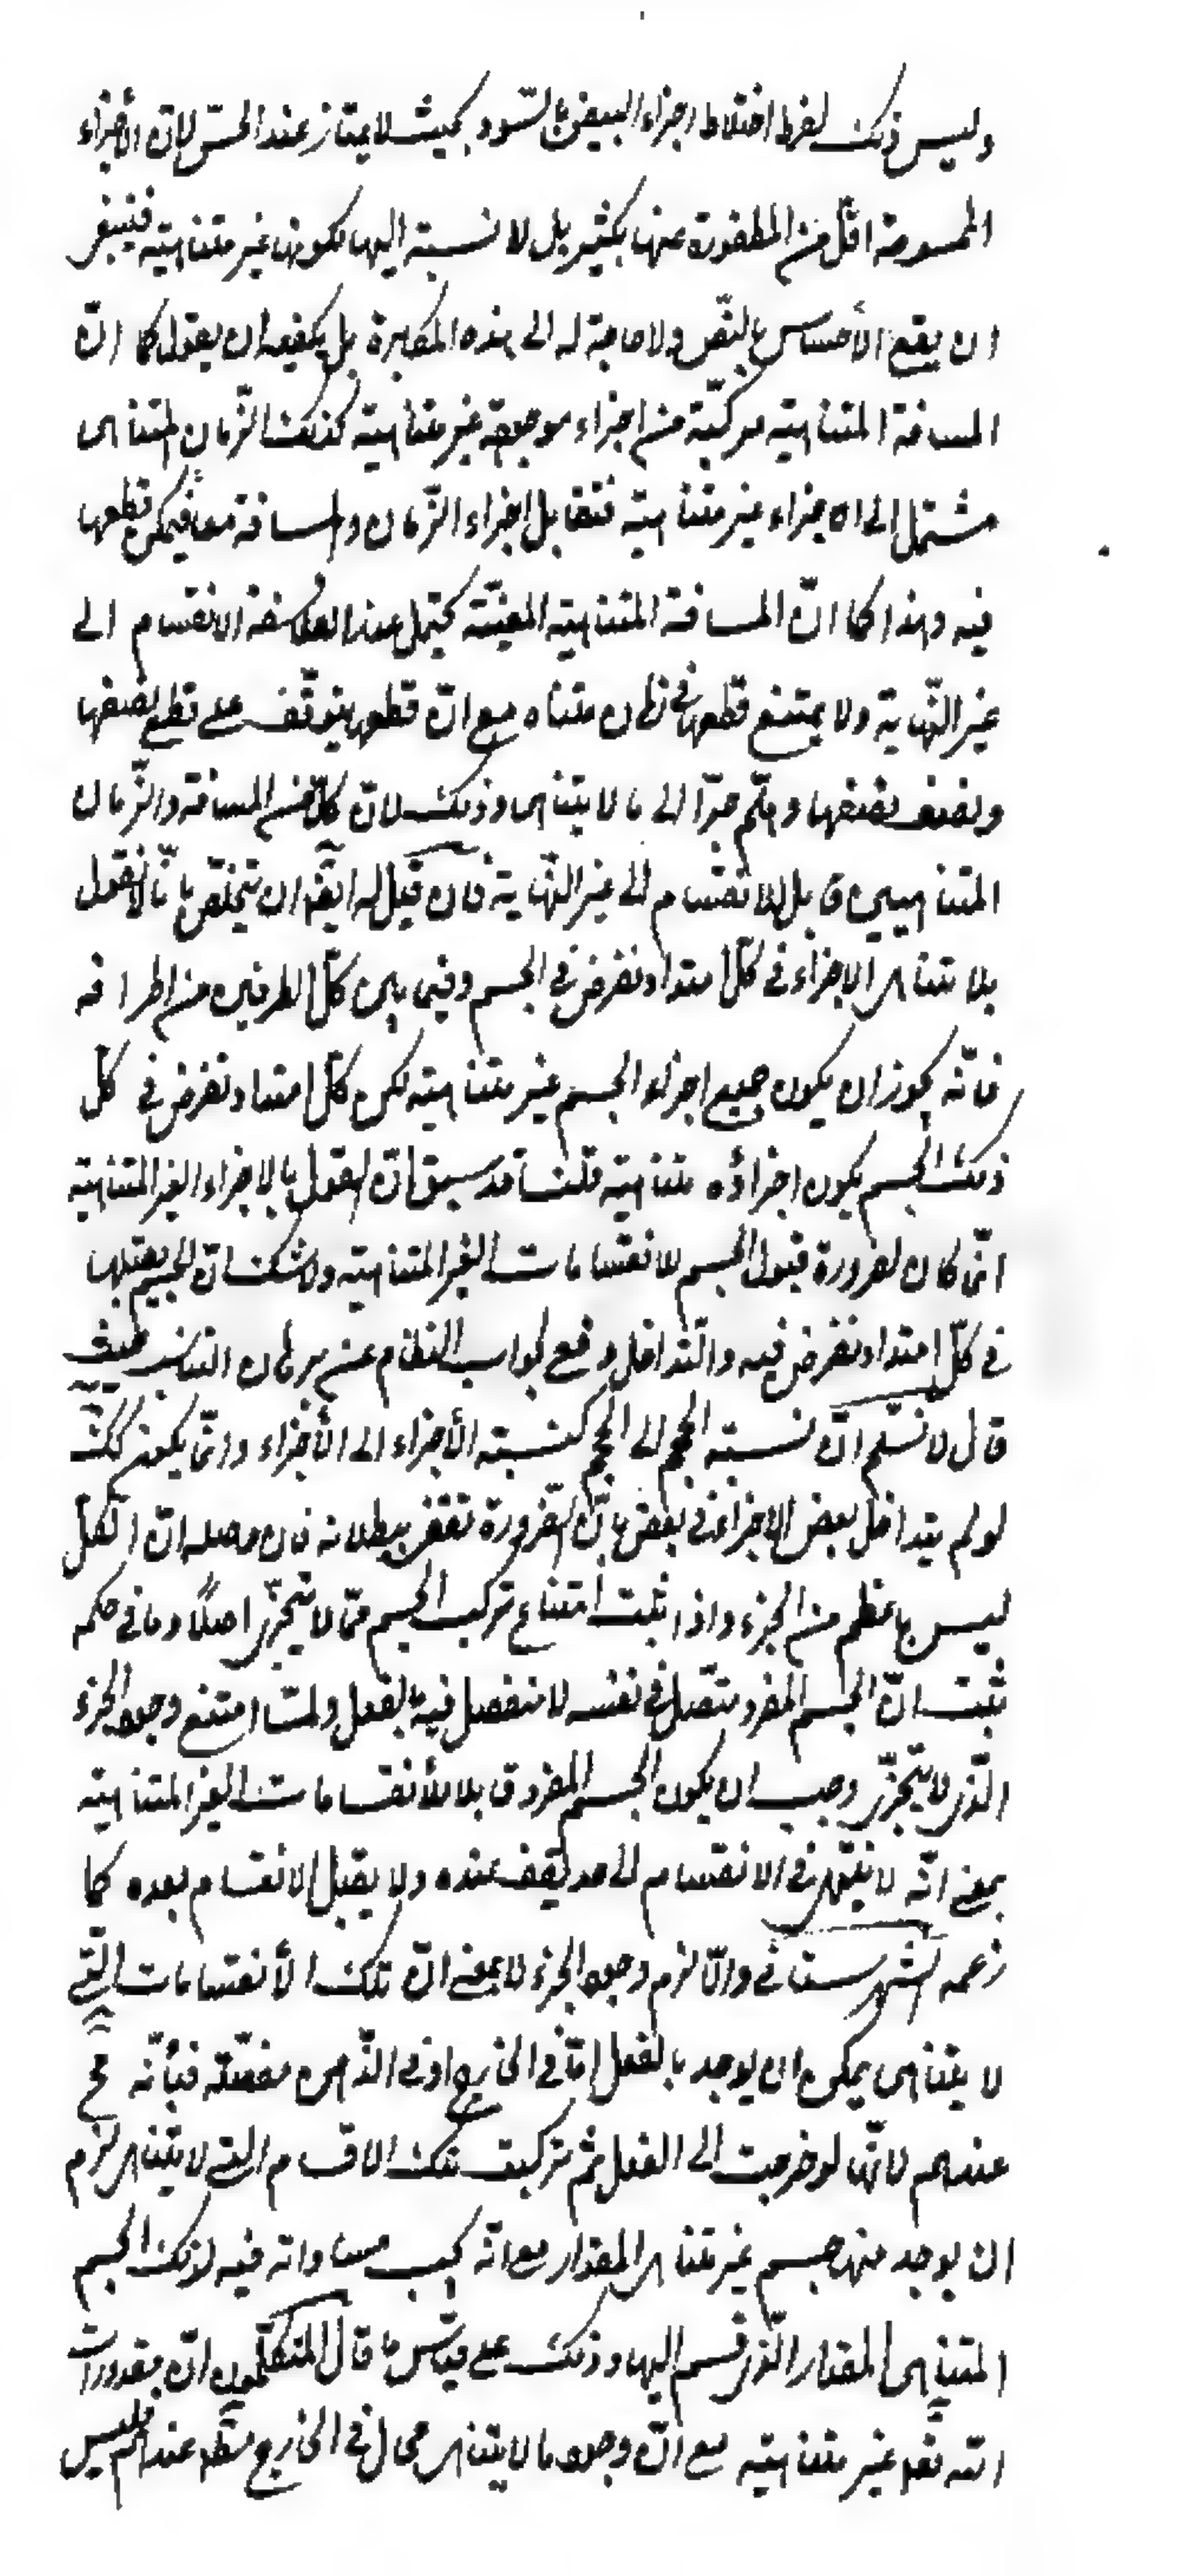 وليس ذلك لفرط اختلاط اجزاء البيض بالسّود بحيث لا يمتاز عند الحسّ لانّ الأجزاء
الممسوحة اقلّ من المطفورة عنها بكثير بل لا نسبة اليها لكونها غير متناهية فينبغى
ان يقع الأحساس بالنّص ولا حاجة له الى هذه المكابرة بل يكفيه ان يقول كما انّ
المسافة المتناهية مركّبة من اجزاء موجودة غير متناهية كذلك الزّمان المتناهى
مشتمل الى اجزاء غير متناهية فتقابل اجزاء الزّمان والمسافة معا فيمكن قطعها
فيه وهذا كما انّ المسافة المتناهية المعيّنة يحتمل عند الفلاسفة الانقسام الى
غير النّهاية ولا يمتنع قطعها فى زمان متناه مع انّ قطعها يتوقّف على قطع نصفها
ونصف نصفها وهلّم جرّا الى ما لا يتناهى وذلك لانّ كلّا من المسافة والزّمان
المتناهيين قابل للانقسام الى غير النّهاية فان قيل له ايضا ان يتخلّص بانّا لا نقول
بلا تناهى الاجزاء فى كلّ امتداد نفرض فى الجسم وفيما بين كلّ الطرفين من اطرافه
فانّه يجوز ان يكون جميع اجزاء الجسم غير متناهية لكن كلّ امتداد نفرض فى كلّ
ذلك الجسم يكون اجزاؤه متناهية قلنا قد سبق انّ القول بالاجزاء الغير المتناهية
انّما كان لضرورة قبول الجسم لانقسامات الغير المتناهية ولا شك انّ الجسم يقبلها
فى كلّ امتداد نفرض فيه والتّداخل وقع لجواب النظام عن برهان التناسب حيث
قال لا نسلّم انّ نسبة الحجم الى الحجم كنسبة الأجزاء الى الأجزاء وانّما يكون كك
لو لم يتداخل بعض الاجزاء فى بعض بانّ الضّرورة تقضى ببطلانه فان حاصله انّ الكلّ
ليس باعظم من الجزء واذا ثبت امتناع تركيب الجسم ممّا لا يتجزّى اصلًا وما فى حكمه
ثبت انّ الجسم المفرد متّصل فى نفسه لا منفصل فيه بالفعل ولمّا امتنع وجود الجزء
الّذى لا يتجزّى وجب ان يكون الجسم المفرد قابلا للأنقسامات الغير المتناهية
بمعنى انّه لا ينتهى فى الانقسام الى حد يقف عنده ولا يقبل الانقسام بعده كما
زعمه الشهرستانى والّا لزم وجود الجزء لا بمعنى انّ تلك الأنقسامات الّتى
لا يتناهى يمكن ان يوجد بالفعل امّا فى الخارج او فى الذّهن مفصّلة فانّه مح
عندهم لانّها لو خرجت الى الفعل ثم تركبت تلك الاقسام التى لا يتناهى لزم
ان يوجد منها جسم غير متناهى المقدار مع انّه يجب مساواته فيه لذلك الجسم
المتناهى المقدار الّذى قسم اليها وذلك على قياس ما قال المتكلّمون انّ مقدورات
اللّه تعه غير متناهية مع انّ وجود ما لا يتناهى محال فى الخارج مطه عندهم فليس